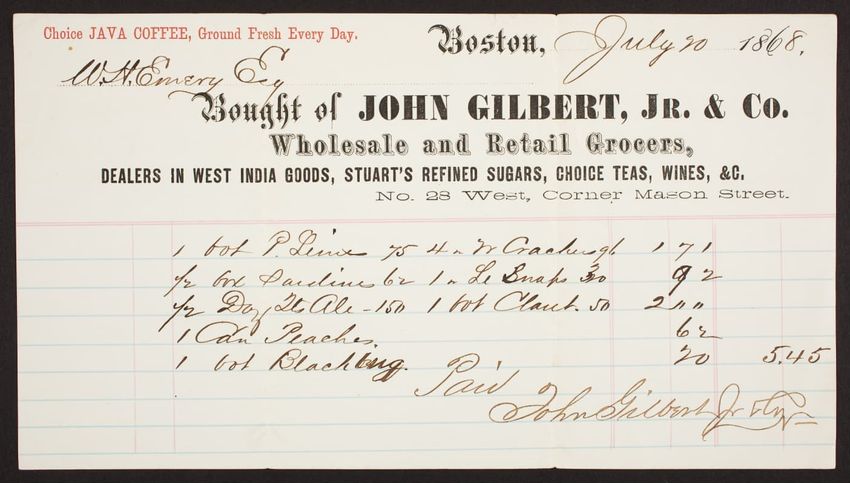 Choice JAVA COFFEE, Ground Fresh Every Day.
Boston, July 20 1868.
W. H. Emery Esq
Bought of JOHN GILBERT, JR. & Co.
Wholesale and Retail Grocers,
DEALERS IN WEST INDIA GOODS, STUART'S REFINED SUGARS, CHOICE TEAS, WINES, &C,
No. 28 West, Corner Mason Street.
1 bot P. Lime 75 4 " W Crackers 96 1 71
1/2 box Sardines 62 1 " Le Snaps 30 92
1/2 Doz Qts Ale - 150 1 bot Claret 50 2 " "
1 Can Peaches 62
1 bot Blacking. 20 5.45
Paid
John Gilbert Jr & Co